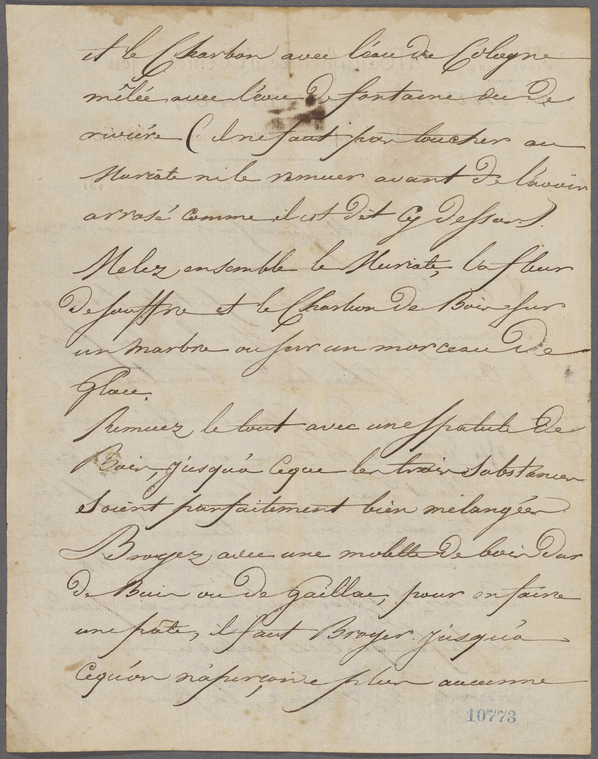 et le Charbon avec l'éau de Cologne
mêlée avec l'éau de fontaine ou de
riviére ( il ne faut pas toucher au
Muriate ni le remuer avant de l'avoir
arrosé comme il est dit Cy dessus ).
Melez, ensemble le Muriate, la fleur
de souffre et le Charbon de Bois sur
un marbre ou sur un morceau de
glace.
Remuez, le tout avec une spatule de
Bois, jusqu'a ceque les trois substances
soient parfaitement bien mélangées
Broyez, avec une molette de bois dur
de Buis ou de Gaillac, pour en faire
une pate, il faut Broyer jusqu'a
cequ'on n'aperçoive plus aucunne
10773